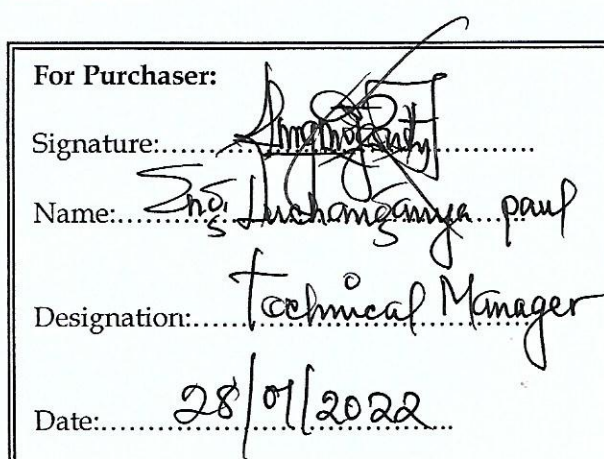 For Purchaser:
Signature:
Name: Eng. paul
Designation: Technical Manager
Date: 28/07/2022